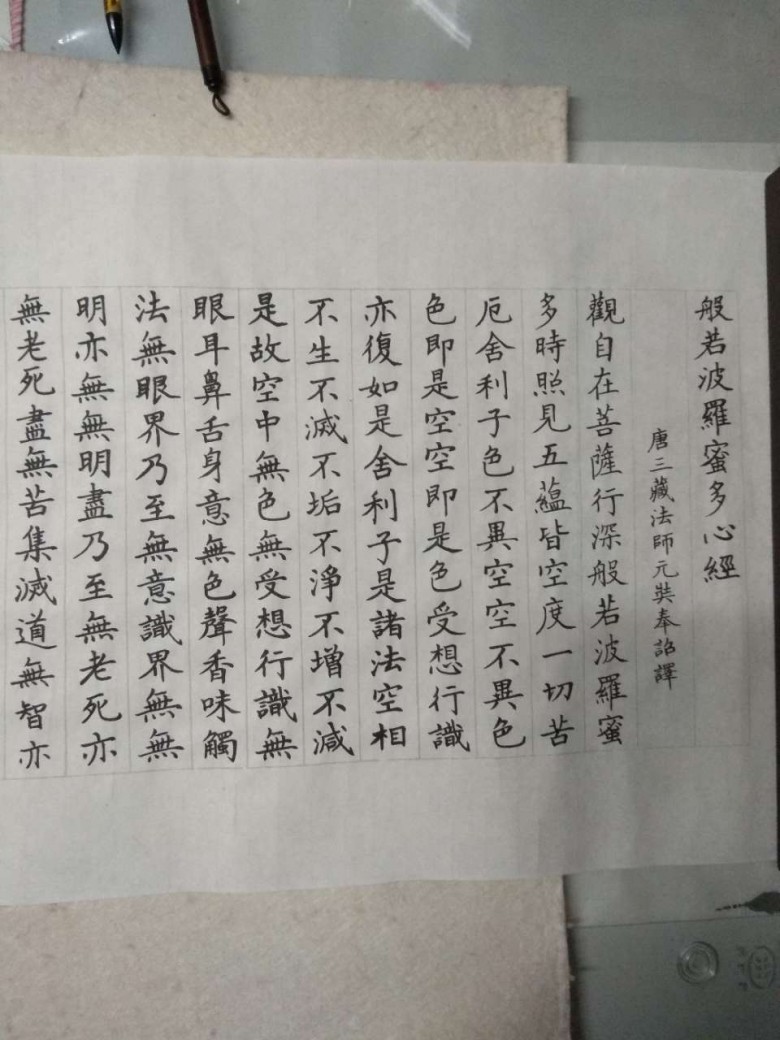 般若波羅蜜多心經
唐三藏法師元奘奉詔譯
觀自在菩薩行深般若波羅蜜
多時照見五蘊皆空度一切苦
厄舍利子色不異空空不異色
色即是空空即是色受想行識
亦復如是舍利子是諸法空相
不生不滅不垢不淨不增不減
是故空中無色無受想行識無
眼耳鼻舌身意無色聲香味觸
法無眼界乃至無意識界無無
明亦無無明盡乃至無老死亦
無老死盡無苦集滅道無智亦